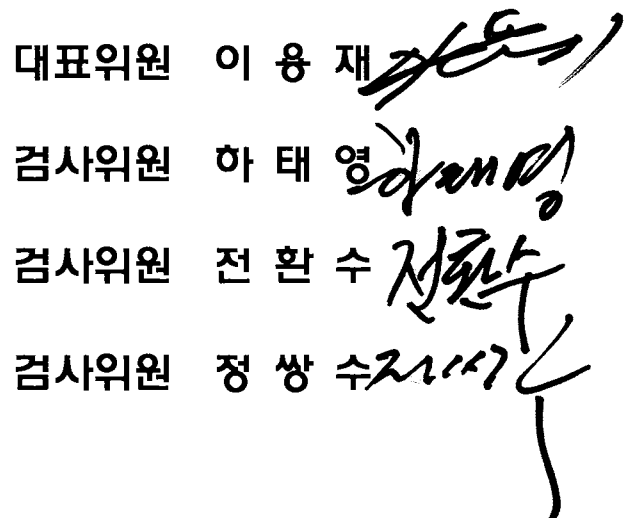 대표위원 이 용 재
검사위원 하 태 영 하태영
검사위원 전 환 수 전환수
검사위원 정 쌍 수